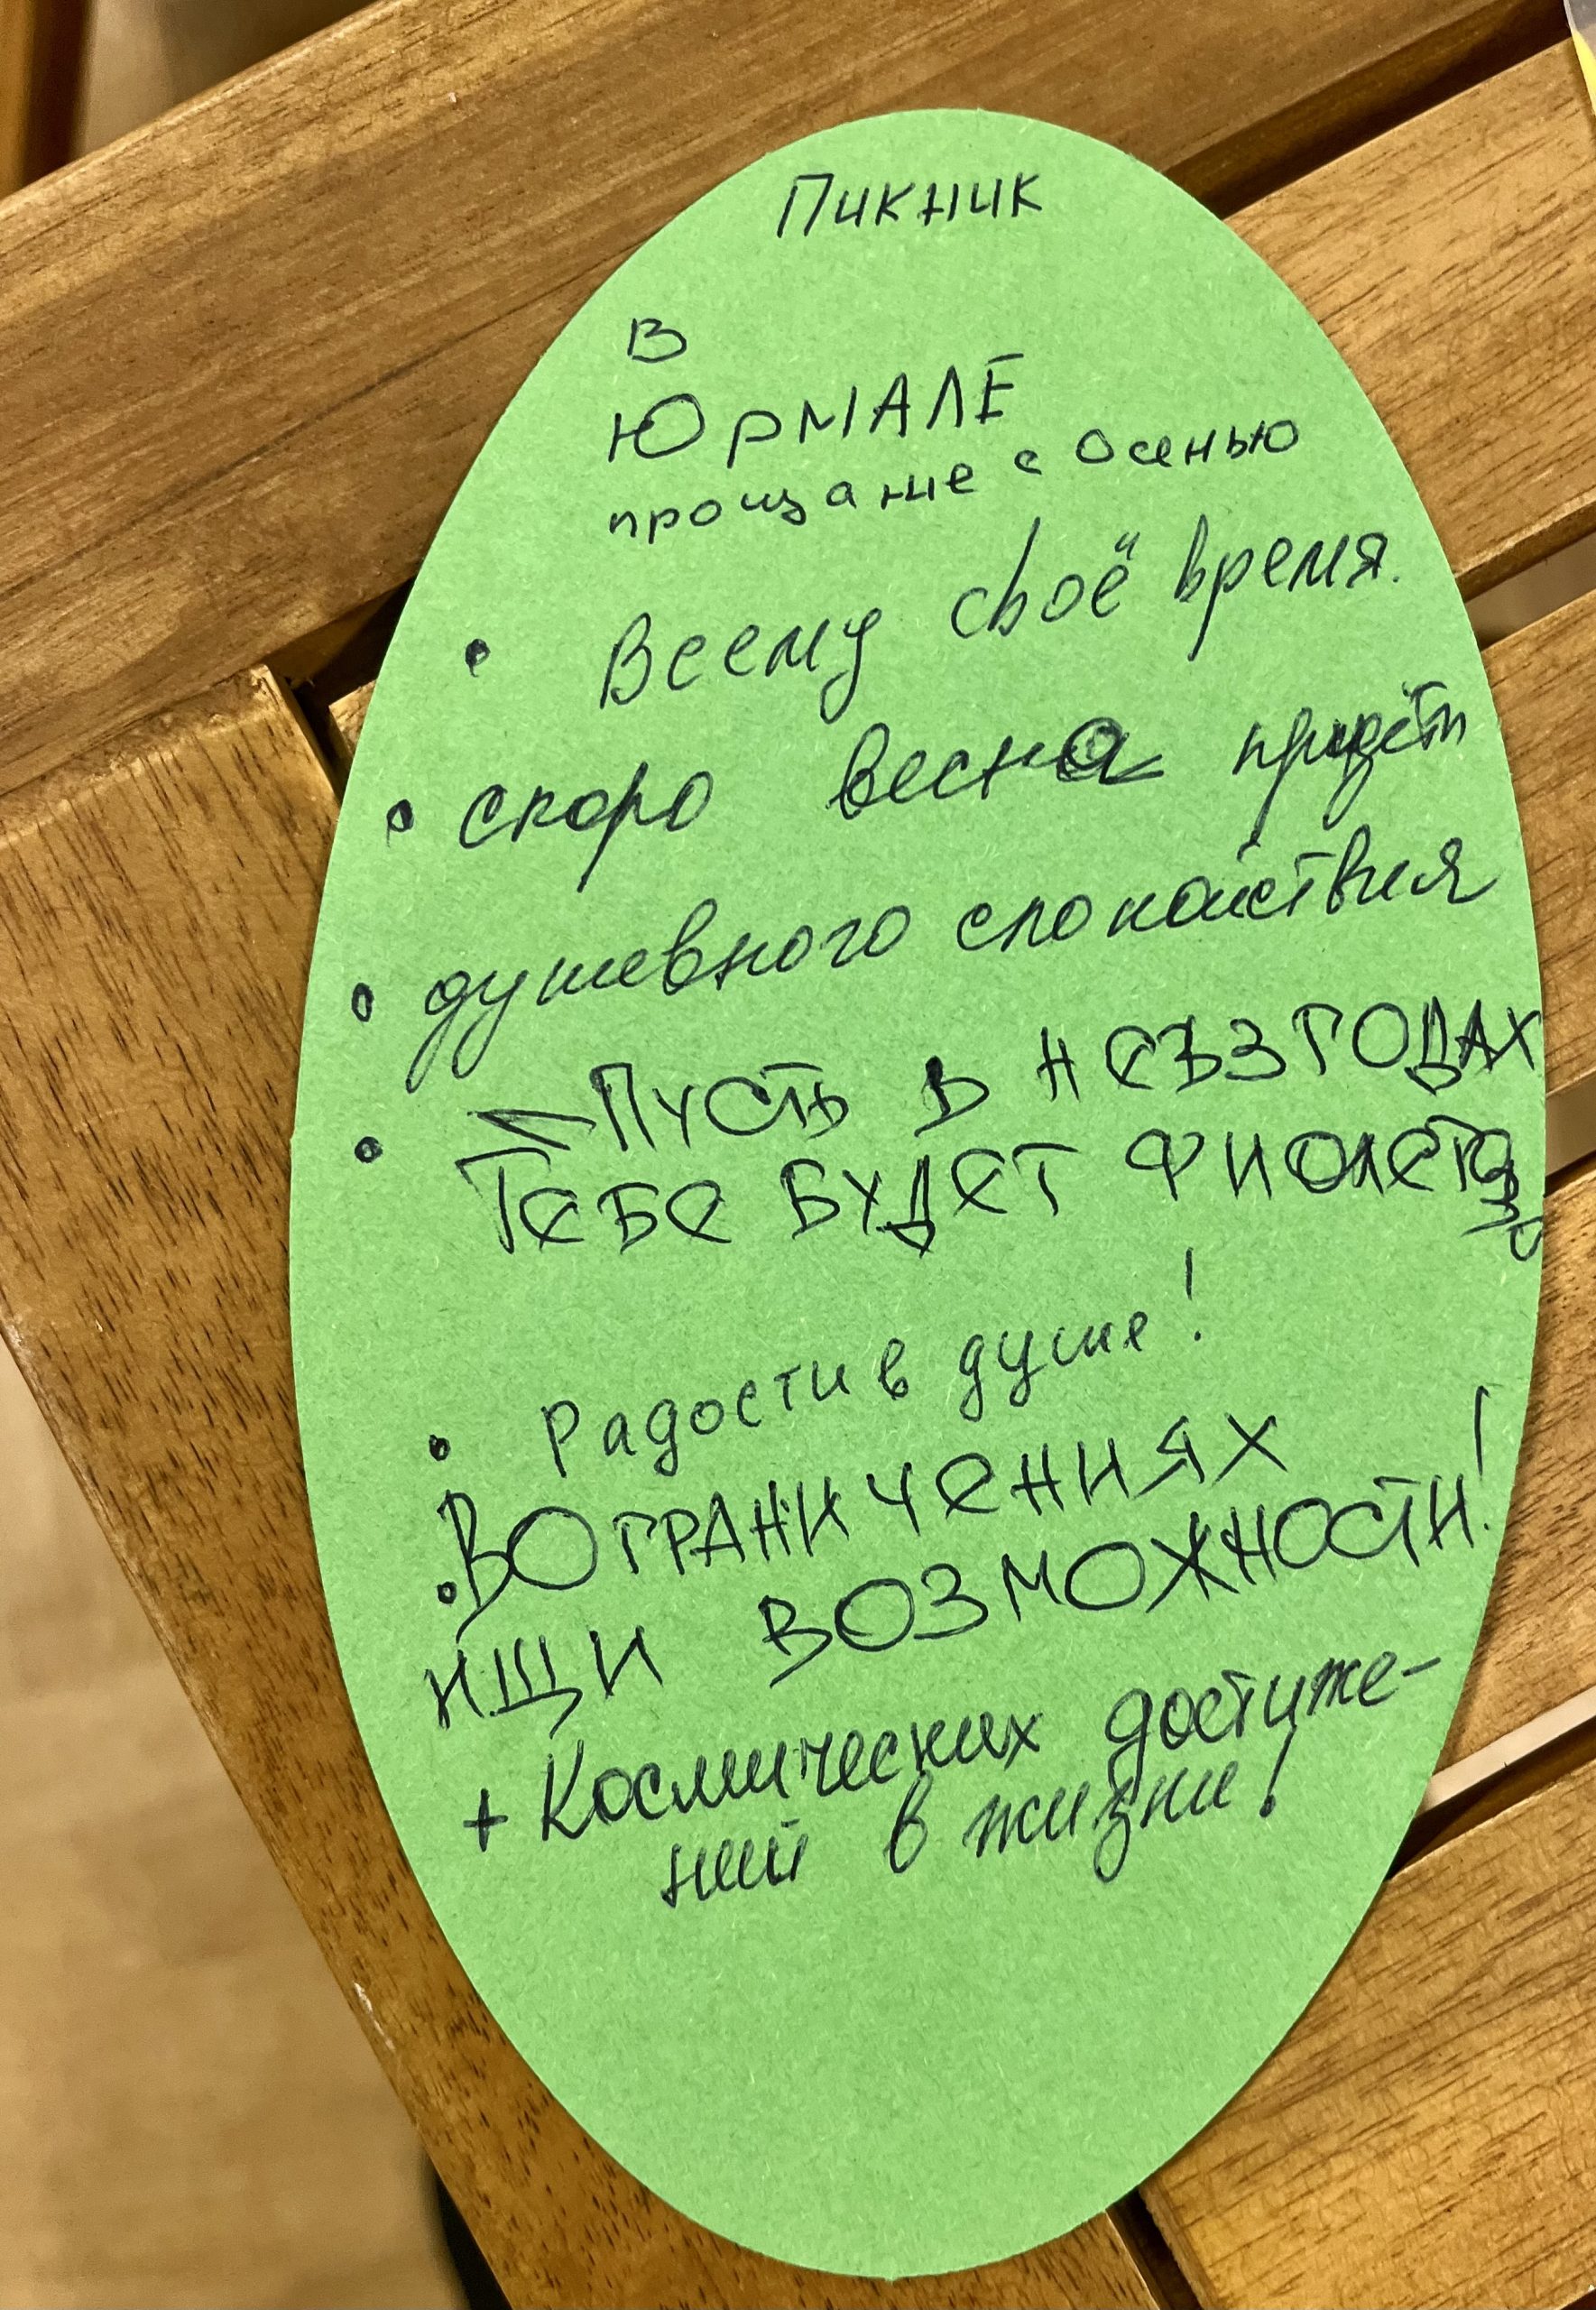 Пикник
в
ЮРМАЛЕ
прощание с осенью
• Всему своё время.
• скоро весна придёт
• душевного спокойствия
• ПУСТЬ В НЕВЗГОДАХ
ТЕБЕ БУДЕТ ФИОЛЕТОВО
• Радости в душе!
• В ОГРАНИЧЕНИЯХ
ИЩИ ВОЗМОЖНОСТИ!
+ Космических достиже-
ний в жизни!